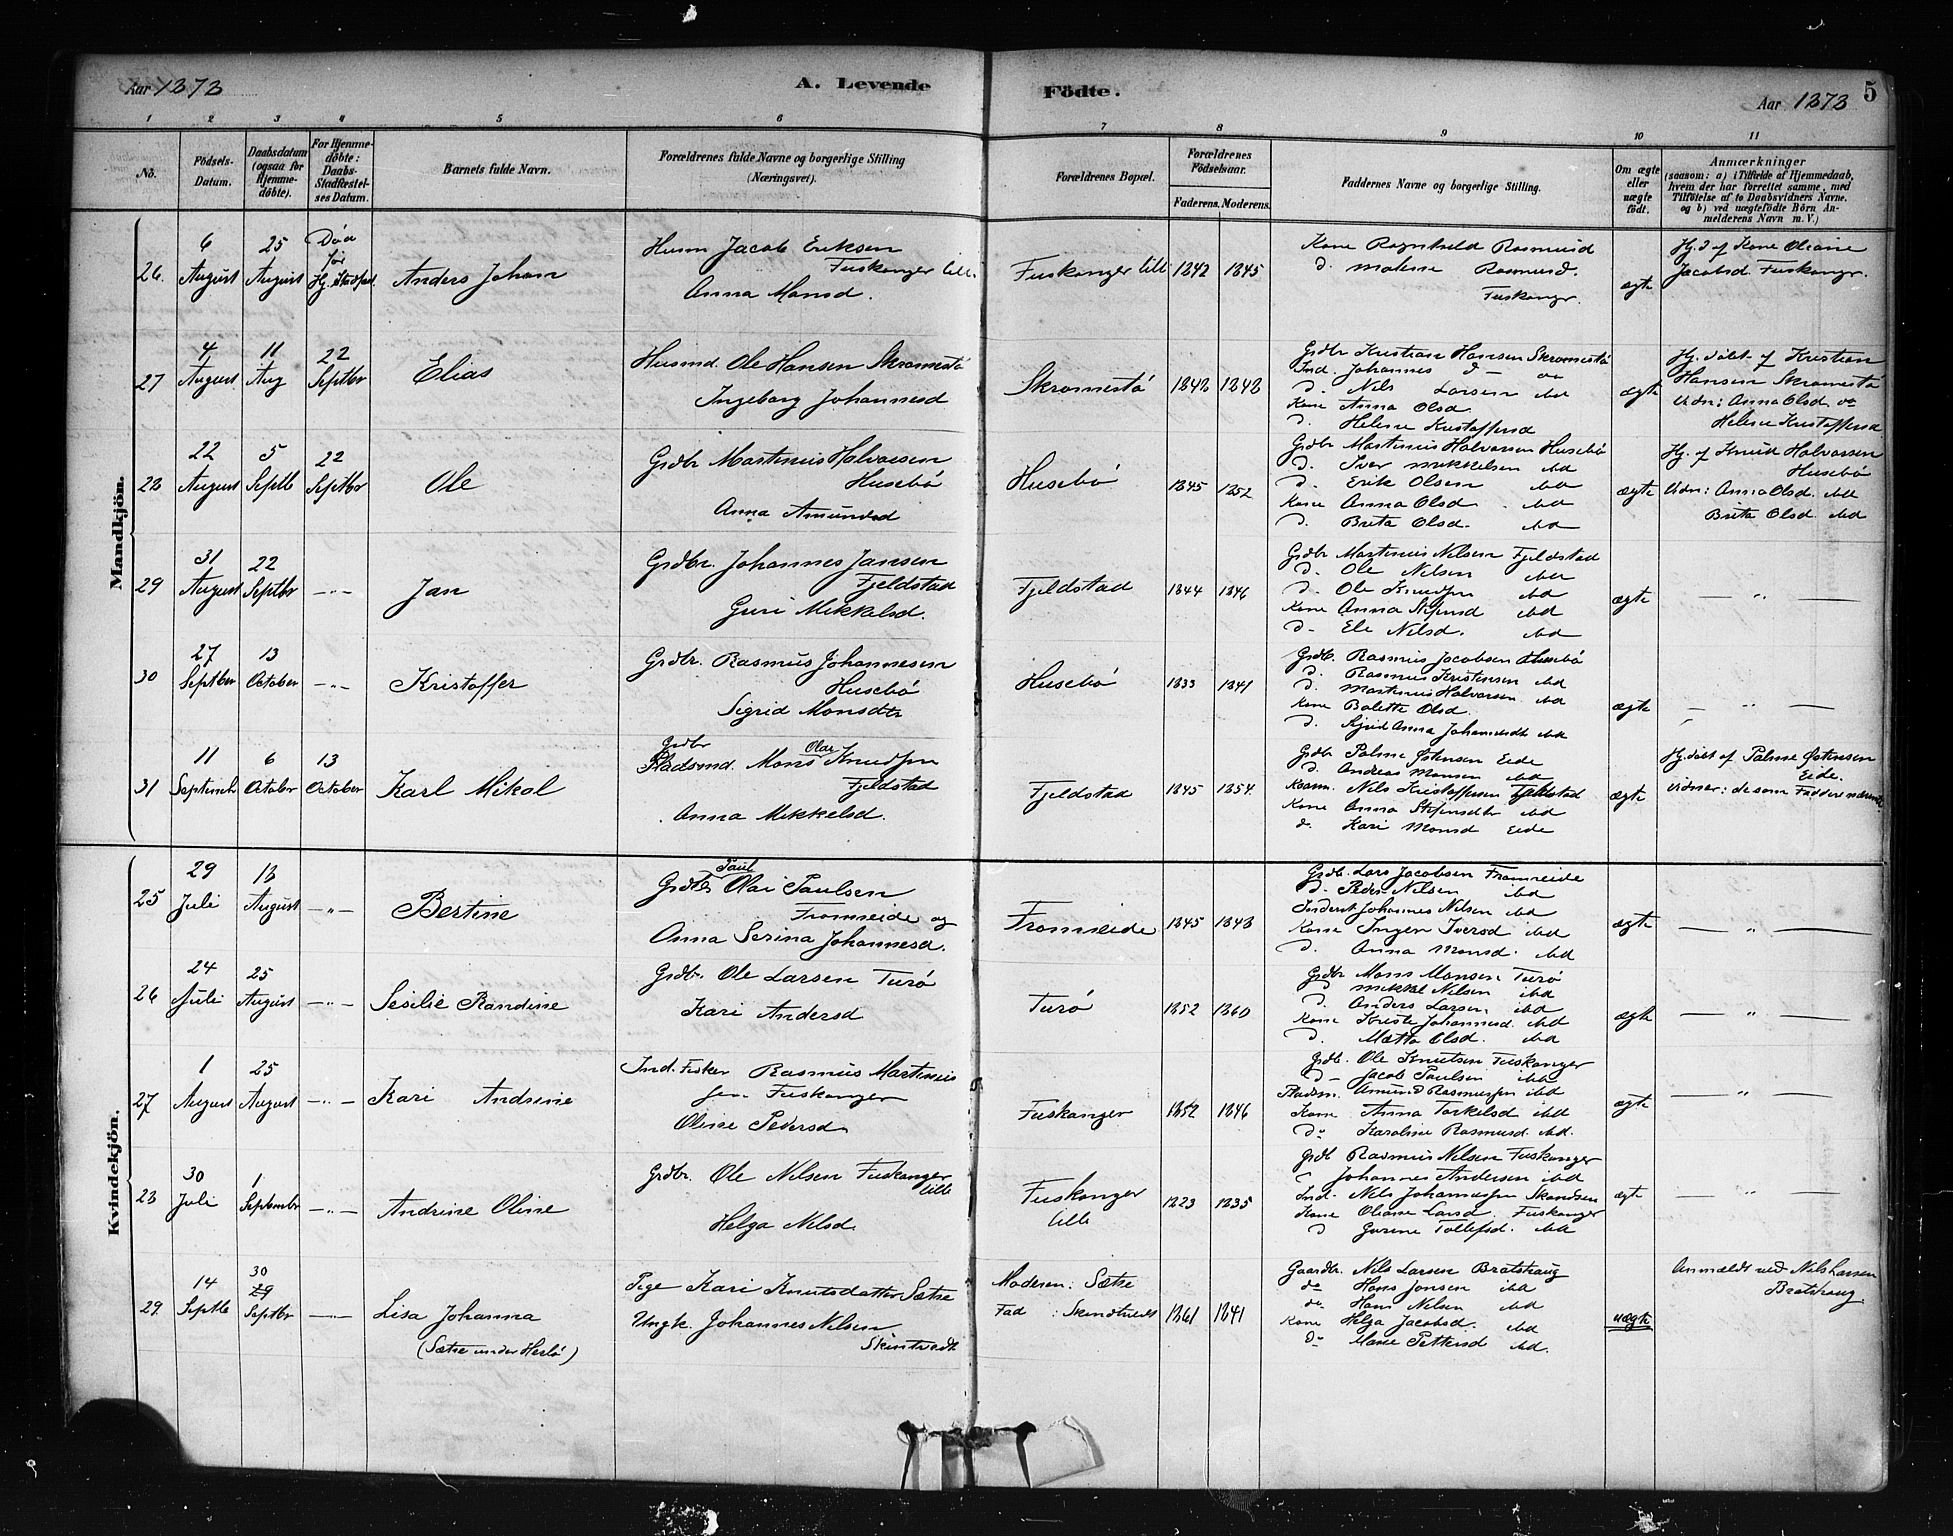 Aar 1878
A. Levende
Födte.
Aar 1878
5
1 2 3 4 5 6 7 8 9 10 11
No.
Födsels-Datum.
Daabsdatum (ogsaa for Hjemme-döbte).
For Hjemme-döbte: Daabs-Stadfæstel-ses Datum.
Barnets fulde Navn.
Forældrenes fulde Navne og borgerlige Stilling (Næringsvei).
Forældrenes Bopæl.
Forældrenes Födselsaar.
Faderens. Moderens.
Faddernes Navne og borgerlige Stilling.
Om ægte eller uægte födt.
Anmærkninger
(saasom: a) i Tilfælde af Hjemmedaab,
hvem der har forrettet samme, med
Tilföielse af to Daabsvidners Navne.
og b) ved uægtefödte Börn An-
melderens Navn m. V.)
Mandkjön.
26. 6 August 25 August Död för Hj. Stadfæst. Anders Johan
Husm Jacob Eriksen
Fuskanger lill.
Anna Monsd.
Fuskanger lill 1842 1845
Kone Ragnhild Rasmusd
d. Malene Rasmusd.
Fuskanger.
ægte
Hj. d. af Kone Oliane
Jacobsd Fuskangr.
27 4 August 11 Aug 22 Septbr Elias
Husmd. Ole Hansen Skromestö
Ingeborg Johannesd
Skromestö 1848 1848
Grdbr Kristian Hansen Skromestö
Ind. Johannes d
d. Nils Larsen ibd
Kone Anna Olsd
d. Helene Kristoffersd
ægte
Hj. döbt af Kristian
Hansen Skromestö
Vidn: Anna Olsd og
Helene Kristoffersd
28 22 August 5 Septb 22 Septbr Ole
Grdbr Martinius Halvorsen
Husebö
Anna Amundsd
Husebö 1845 1852
Grdbr Martinius Halvorsen Husebö
d. Iver Mikkelsen ibd
d. Erik Olsen ibd
Kone Anna Olsd ibd
d. Brita Olsd. ibd
ægte
Hj. af Knud Halvorsen
Husebö
Vidn: Anna Olsd. ibd
Brita Olsd. ibd
29 31 August 22 Septbr -"- Jan
Grdbr. Johannes Jansen
Fjeldstad
Guri Mikkelsd.
Fjeldstad 1844 1846
Grdbr Martinius Nilsen Fjeldstad
d. Ole Nilsen ibd
d. Ole Knudsen ibd
Kone Anna Stefensd ibd
d. Eli Nilsd. ibd
ægte
— " —
30 27 Septber 13 October -"- Kristoffer
Grdbr. Rasmus Johannesen
Husebö
Sigrid Monsdtr
Husebö 1833 1841
Grdb. Rasmus Jacobsen Husebö
d. Rasmus Kristensen ibd
d. Martinius Halvorsen ibd
Kone Bolette Olsd.
d. Anna Johannesdt ibd
ægte
— " —
31 11 Septemb 6 October 13 October Karl Mikal
Grdbr
Pladsmd. Mons Olai Knudsen
Fjeldstad
Anna Mikkelsd.
Fjeldstad 1845 1854
Grdbr Palme Östensen Eide
d. Andreas Monsen ibd
Nils Kristoffersen Fjeldstad
Kone Anna Stefensdtr ibd
d. Kari Monsd Eide
ægte
Hj. döbt af Palme Östensen
Eide.
Vidner: de som Faddere nævnte
Kvindekjön.
25 29 Juli 18 August -"- Bertine
Grdbr Paul Olai Paulsen
Fromreide og
Anna Serina Johannesd.
Fromreide 1845 1848
Grdb. Lars Jacobsen Fromreide
d. Peder Nilsen ibd
Inderst Johannes Nilsen ibd
Kone Inger Iversd ibd
d. Anna Monsd. ibd
ægte
— " —
26 24 Juli 25 August -"- Sesilie Randine
Grdbr. Ole Larsen Turö
Kari Andersd
Turö 1852 1860
Grdbr Mons Monsen Turö
d. Mikkel Nilsen ibd
d. Anders Larsen ibd
Kone Kristi Johannesd. ibd
d. Mætta Olsd. ibd
ægte
— " —
27 1 August 25 August -"- Kari Andrine
Ind. Fisker Rasmus Martinius
sen Fuskanger
Oline Pedersd
Fuskanger 1852 1846
Grdb. Ole Knutsen Fuskanger
d— Jacob Paulsen ibd
Pladsm. Amund Rasmussen ibd
Kone Anna Torkelsd ibd
do Karoline Rasmusd. ibd.
ægte
— " —
28 30 Juli 1 September -"- Andrine Oline
Grdbr. Ole Nilsen Fuskanger
lille
Helga Nilsd
Fuskanger
lille
1823 1835
Grdb Rasmus Nilsen Fuskanger
Johannes Andersen ibd
Ind. Nils Johannessen Skandsen
Kone Oliane Larsd. Fuskanger
d Gurine Tollefsd. ibd
ægte
— " —
29 14 Septb 30 29 Septbr -"- Lisa Johanna
(Sætre under Herlö)
Pige Kari Knutsdatter Sætre
Ungk. Johannes Nilsen
Skintveedt
Moderen: Sætre
Fad : Skindtvedt 1861 1841
Gaardbr. Nils Larsen Bratshaug
do Hans Jonsen ibd
do Hans Nilsen ibd
Kone Helga Jacobsd. ibd
do Marie Pettersd ibd.
uægte
Anmældt ved Nils Larsen
Bratshaug.